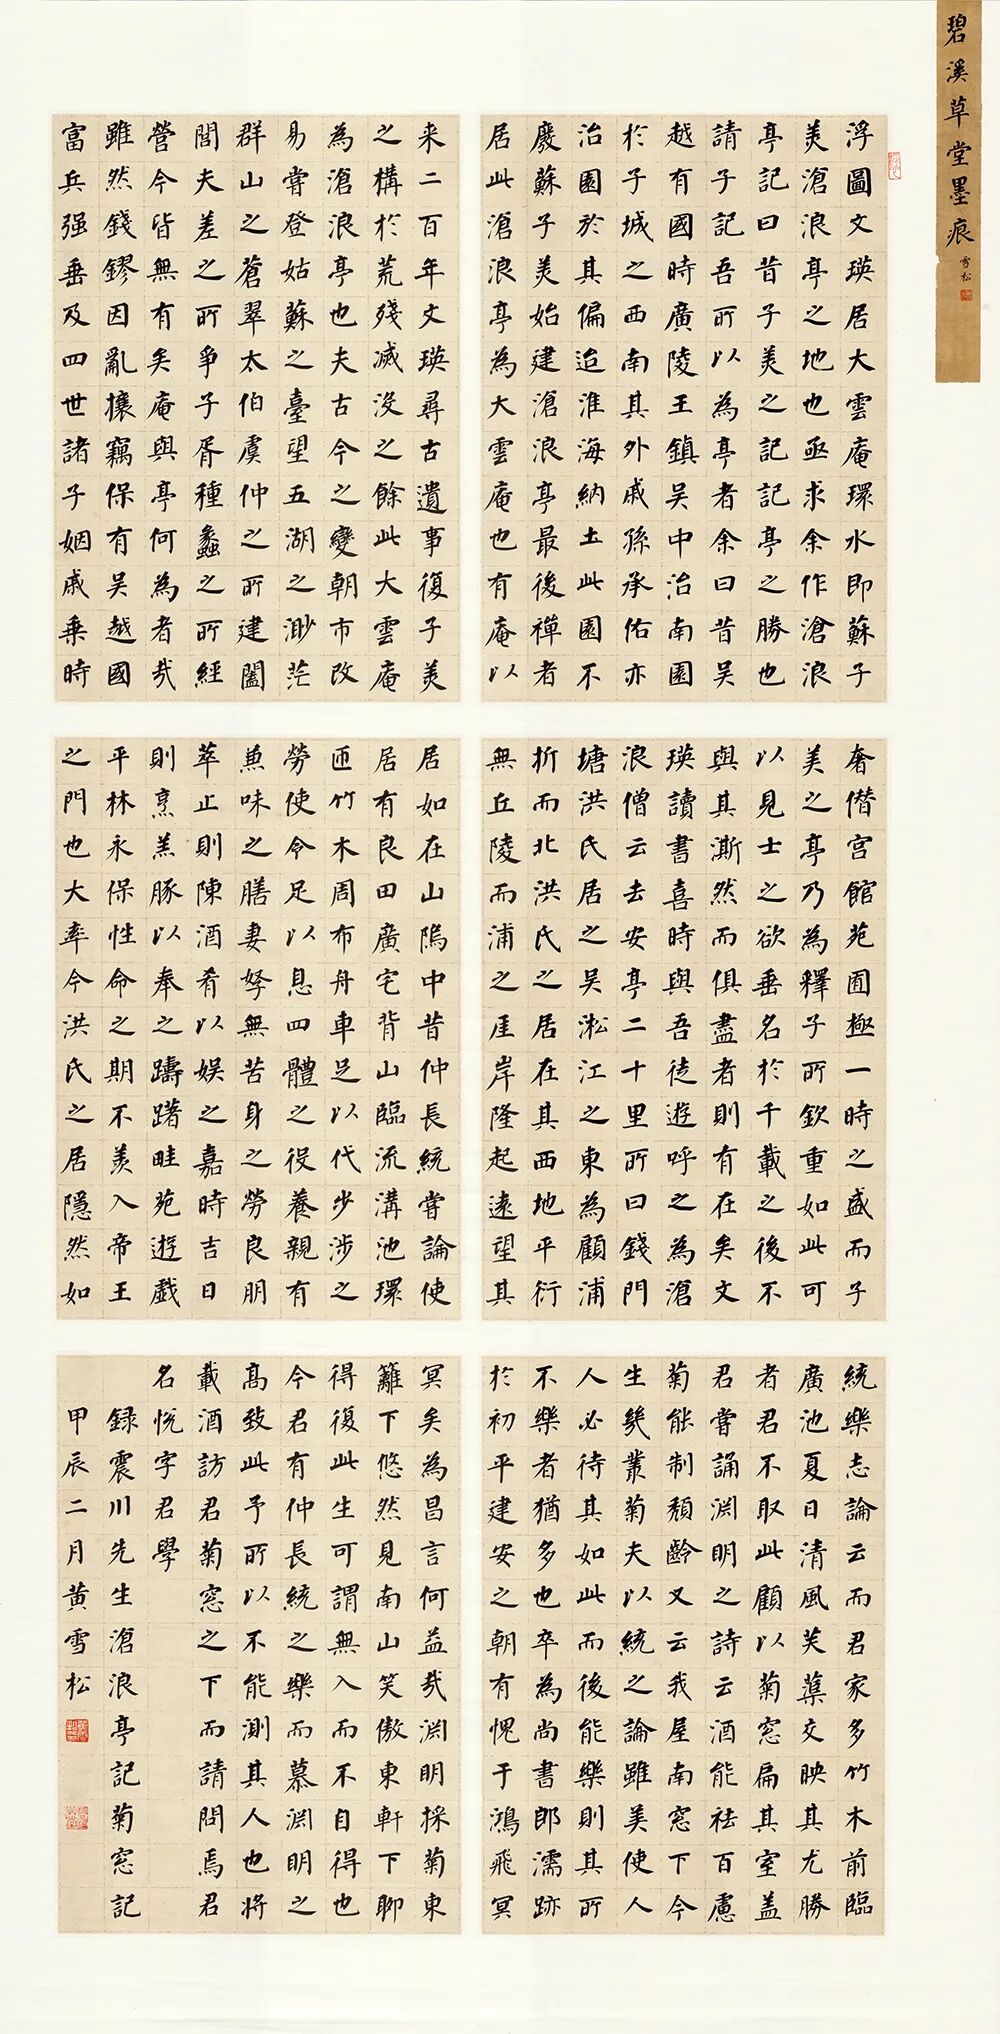 碧溪草堂墨痕
雪松
浮圖文瑛居大雲庵環水即蘇子
美滄浪亭之地也亟求余作滄浪
亭記曰昔子美之記記亭之勝也
請子記吾所以為亭者余曰昔吳
越有國時廣陵王鎮吳中治南園
於子城之西南其外戚孫承佑亦
治園於其偏迨淮海納土此園不
廢蘇子美始建滄浪亭最後禪者
居此滄浪亭為大雲庵也有庵以
来二百年文瑛尋古遺事復子美
之構於荒殘滅沒之餘此大雲庵
為滄浪亭也夫古今之變朝市改
易嘗登姑蘇之臺望五湖之渺茫
群山之蒼翠太伯虞仲之所建闔
閭夫差之所爭子胥種蠡之所經
營今皆無有矣庵與亭何為者哉
雖然錢鏐因亂攘竊保有吳越國
富兵强垂及四世諸子姻戚乘時
奢僭宮館苑囿極一時之盛而子
美之亭乃為釋子所欽重如此可
以見士之欲垂名於千載之後不
與其澌然而俱盡者則有在矣文
瑛讀書喜時與吾徒遊呼之為滄
浪僧云去安亭二十里所曰錢門
塘洪氏居之吳淞江之東為顧浦
折而北洪氏之居在其西地平衍
無丘陵而浦之厓岸隆起遠望其
居如在山隖中昔仲長統嘗論使
居有良田廣宅背山臨流溝池環
匝竹木周布舟車足以代步涉之
勞使令足以息四體之役養親有
兼味之膳妻孥無苦身之勞良朋
萃止則陳酒肴以娱之嘉時吉日
則烹羔豚以奉之躊躇畦苑遊戲
平林永保性命之期不羨入帝王
之門也大率今洪氏之居隱然如
統樂志論云而君家多竹木前臨
廣池夏日清風芙蕖交映其尤勝
者君不取此顧以菊窓扁其室盖
君嘗誦淵明之詩云酒能祛百慮
菊能制頹齡又云我屋南窓下今
生幾叢菊夫以統之論雖美使人
人必待其如此而後能樂則其所
不樂者猶多也卒為尚書郎濡跡
於初平建安之朝有愧于鴻飛冥
冥矣為昌言何益哉淵明採菊東
籬下悠然見南山笑傲東軒下聊
得復此生可謂無入而不自得也
今君有仲長統之樂而慕淵明之
高致此予所以不能測其人也將
載酒訪君菊窓之下而請問焉君
名悅字君學
録震川先生滄浪亭記菊窓記
甲辰二月黄雪松